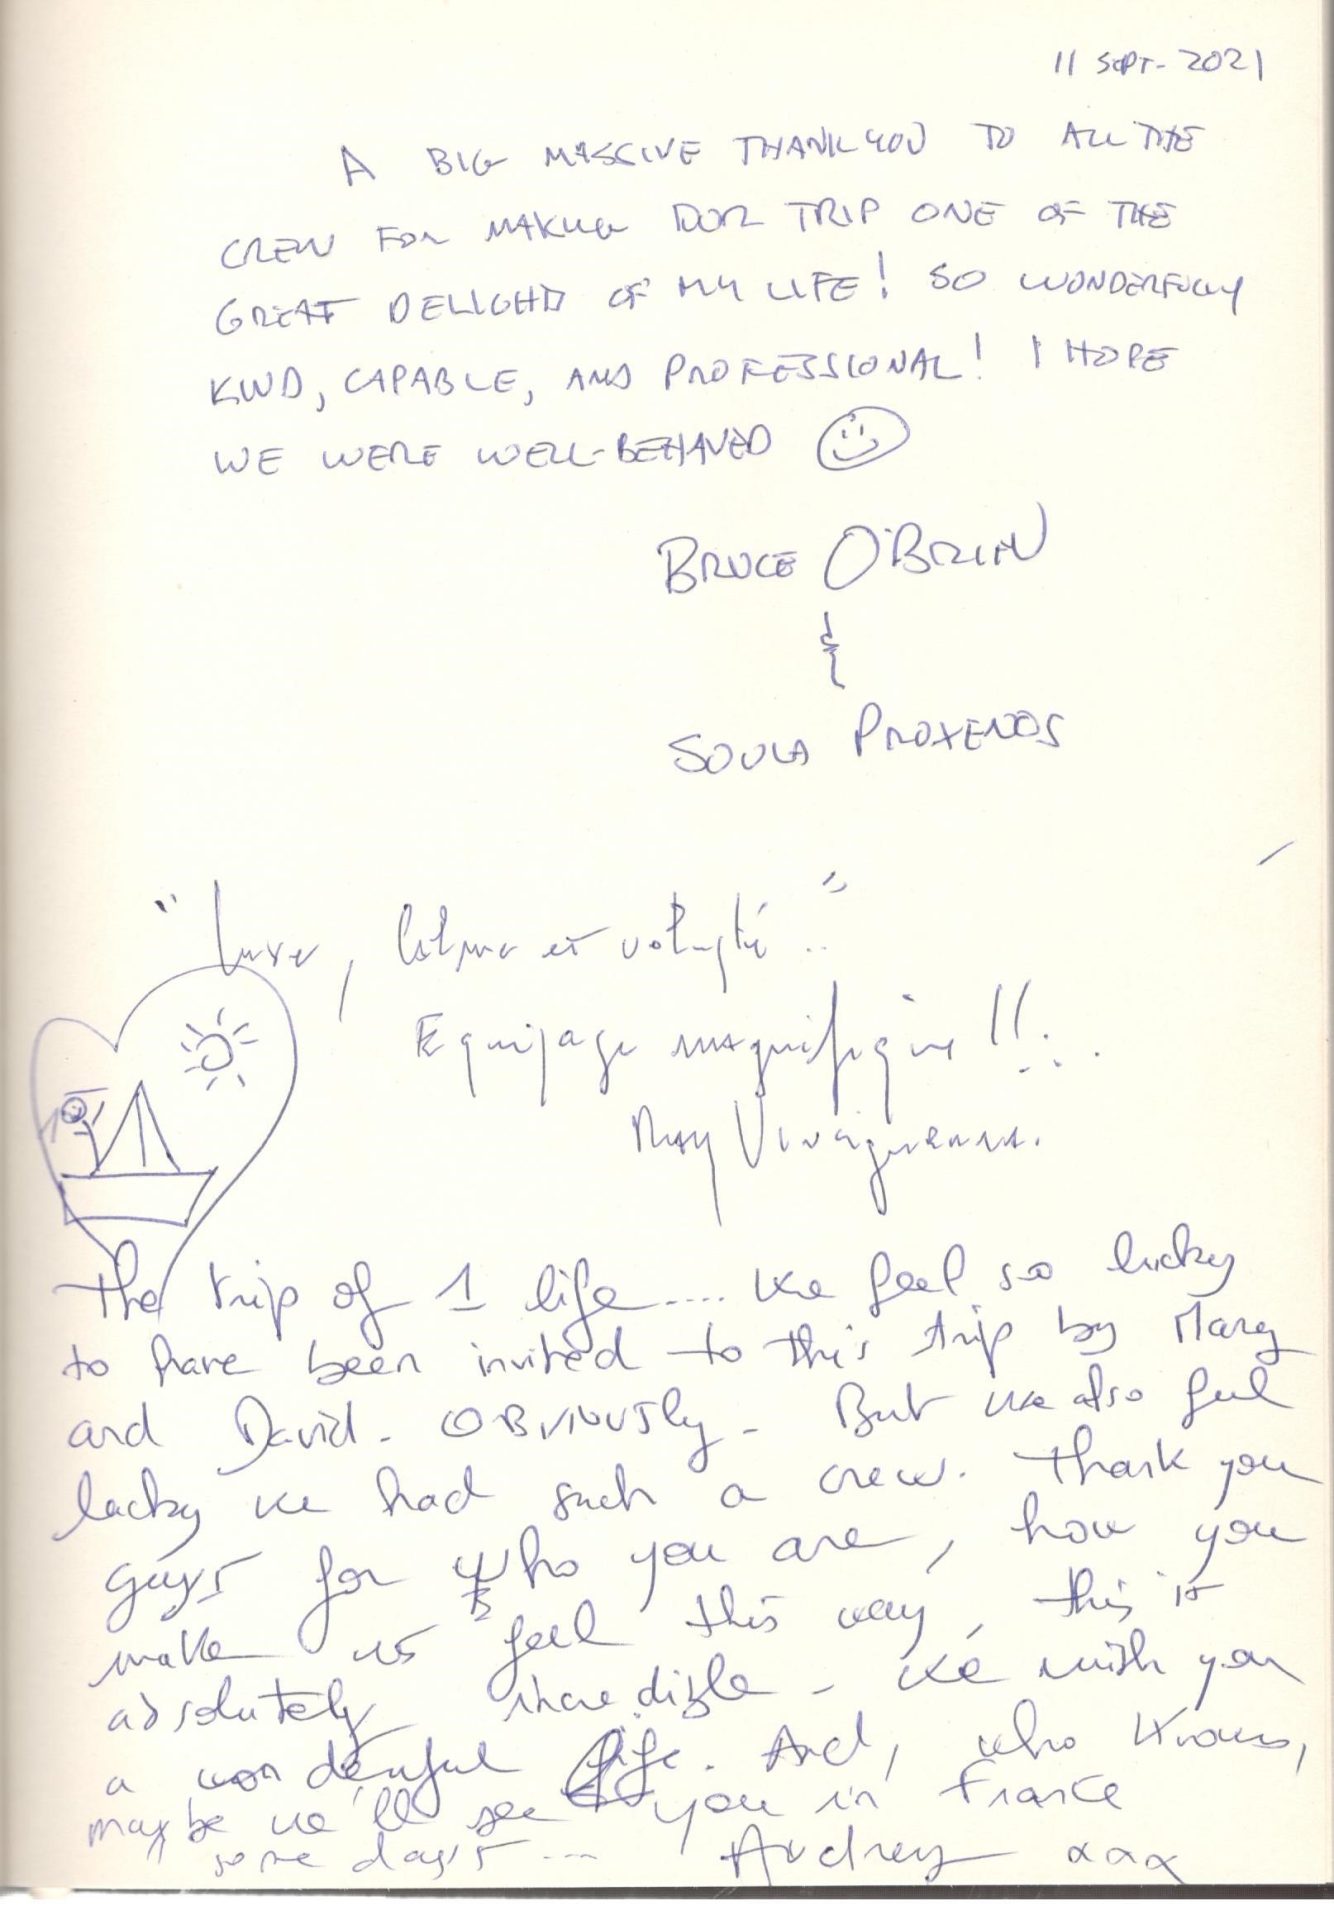 11 SEPT- 2021
A BIG MASSIVE THANK YOU TO ALL THE
CREW FOR MAKING OUR TRIP ONE OF THE
GREAT DELIGHTS OF MY LIFE! SO WONDERFULLY
KIND, CAPABLE, AND PROFESSIONAL! I HOPE
WE WERE WELL-BEHAVED
BRUCE O'BRIEN
&
SOULA PROXENOS
"Luxe, Calme et volupté.."
Equipage magnifique !!...
May
The trip of 1 life.... We feel so lucky
to have been invited to this trip by Mary
and David. OBVIOUSly. But we also feel
lucky we had such a crew. Thank you
guys for who you are, how you
make us feel this way, this is
absolutely incredible. We wish you
a wonderful life. And, who knows,
maybe we'll see you in France
some days...
Audrey xxx